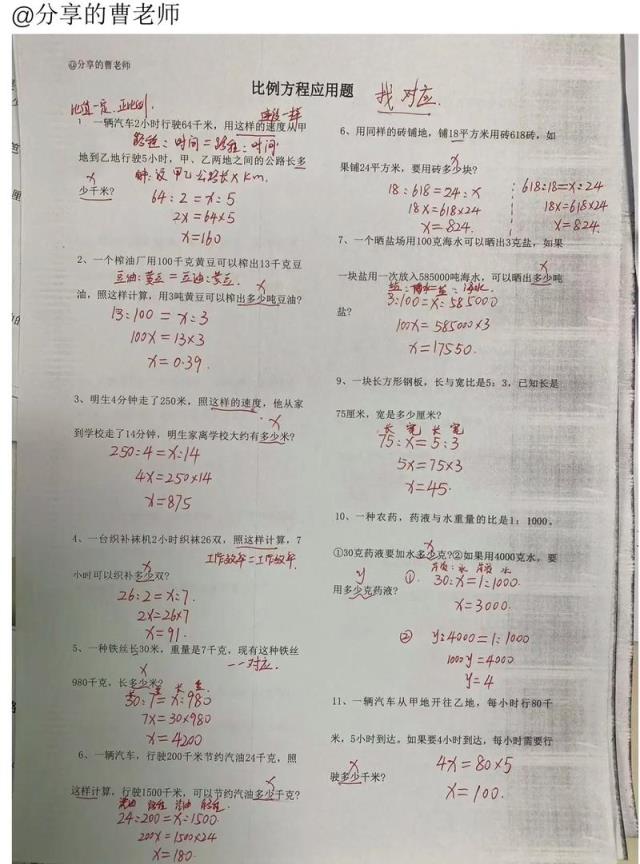 @分享的曹老师
@分享的曹老师
比例方程应用题 找对应.
速度一定 正比例.
速度一样
1、一辆汽车2小时行驶64千米，用这样的速度从甲
路程：时间＝路程：时间.
地到乙地行驶5小时，甲、乙两地之间的公路长多
解:设甲乙公路长x km.
x
少千米？
64:2=x:5
2x=64×5
x=160
2、一个榨油厂用100千克黄豆可以榨出13千克豆
豆油:黄豆＝豆油:黄豆. x
油，照这样计算，用3吨黄豆可以榨出多少吨豆油？
13:100=x:3
100x=13×3
x=0.39.
3、明生4分钟走了250米，照这样的速度，他从家
x
到学校走了14分钟，明生家离学校大约有多少米？
250:4=x:14
4x=250×14
x=875
4、一台织补袜机2小时织袜26双，照这样计算，7
x 工作效率＝工作效率.
小时可以织补多少双？
26:2=x:7.
2x=26×7
x=91.
5、一种铁丝长30米，重量是7千克，现有这种铁丝
x 一一对应.
980千克，长多少米？
长 重 长 重.
30:7=x:980
7x=30×980
x=4200
6、一辆汽车，行驶200千米节约汽油24千克，照
x
这样计算，行驶1500千米，可以节约汽油多少千克？
汽油 路程 汽油 路程.
24:200=x:1500.
200x=1500×24
x=180.
6、用同样的砖铺地，铺18平方米用砖618砖，如
x
果铺24平方米，要用砖多少块？
18:618=24:x 618:18=x:24
18x=618×24 18x=618×24
x=824. x=824.
7、一个晒盐场用100克海水可以晒出3克盐，如果
x
一块盐用一次放入585000吨海水，可以晒出多少吨
盐?
3:100=x:585000
100x=585000×3
x=17550.
9、一块长方形钢板，长与宽比是5：3，已知长是
75厘米，宽是多少厘米？
长 宽 长 宽
75:x=5:3
5x=75×3
x=45.
10、一种农药，药液与水重量的比是1：1000。
x
①30克药液要加水多少克?②如果用4000克水，要
y 药液:水 药液 水
用多少克药液？
① 30:x=1:1000.
x=3000.
② y:4000=1:1000
1000y=4000
y=4
11、一辆汽车从甲地开往乙地，每小时行80千
米，5小时到达。如果要4小时到达，每小时需要行
x
驶多少千米？
4x=80×5
x=100.